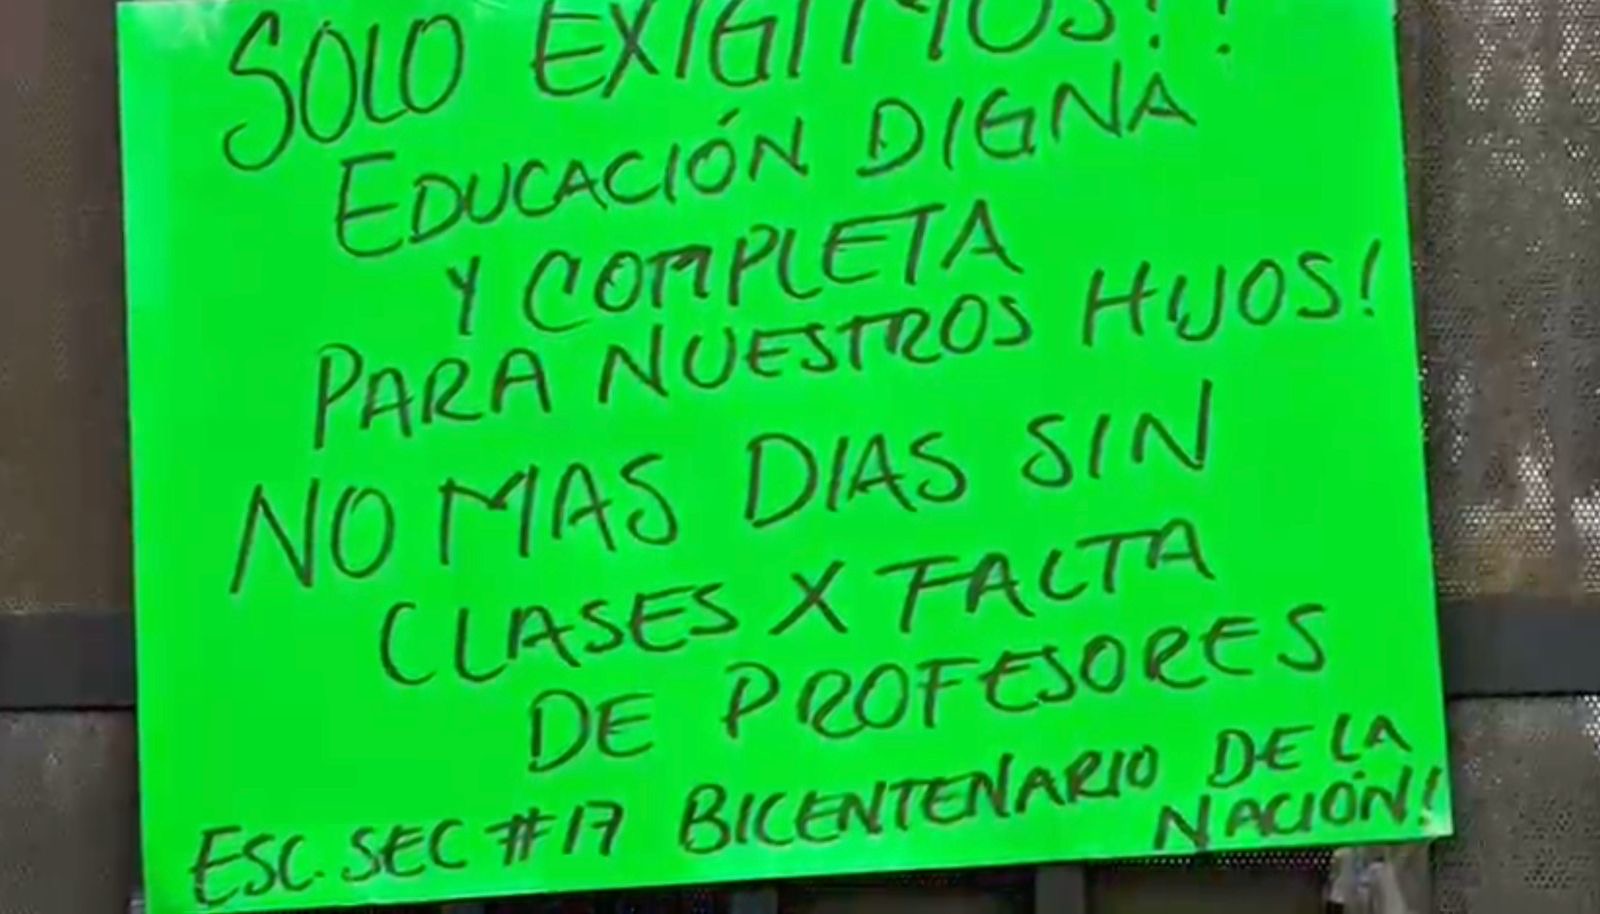 SOLO EXIGIMOS!!
EDUCACIÓN DIGNA
Y COMPLETA
PARA NUESTROS HIJOS!
NO MAS DIAS SIN
CLASES X FALTA
DE PROFESORES
ESC. SEC #17 BICENTENARIO DE LA
NACIÓN!